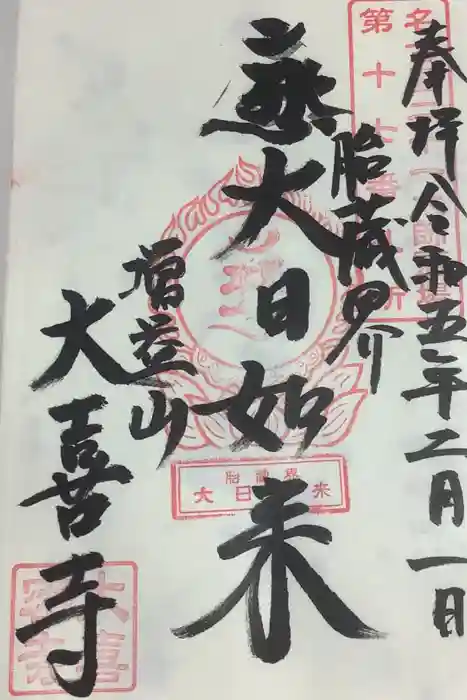 奉拝 令和五年二月一日
胎蔵界
大日如来
増益山
大喜寺
第十七番
胎蔵界
大日如来
大喜